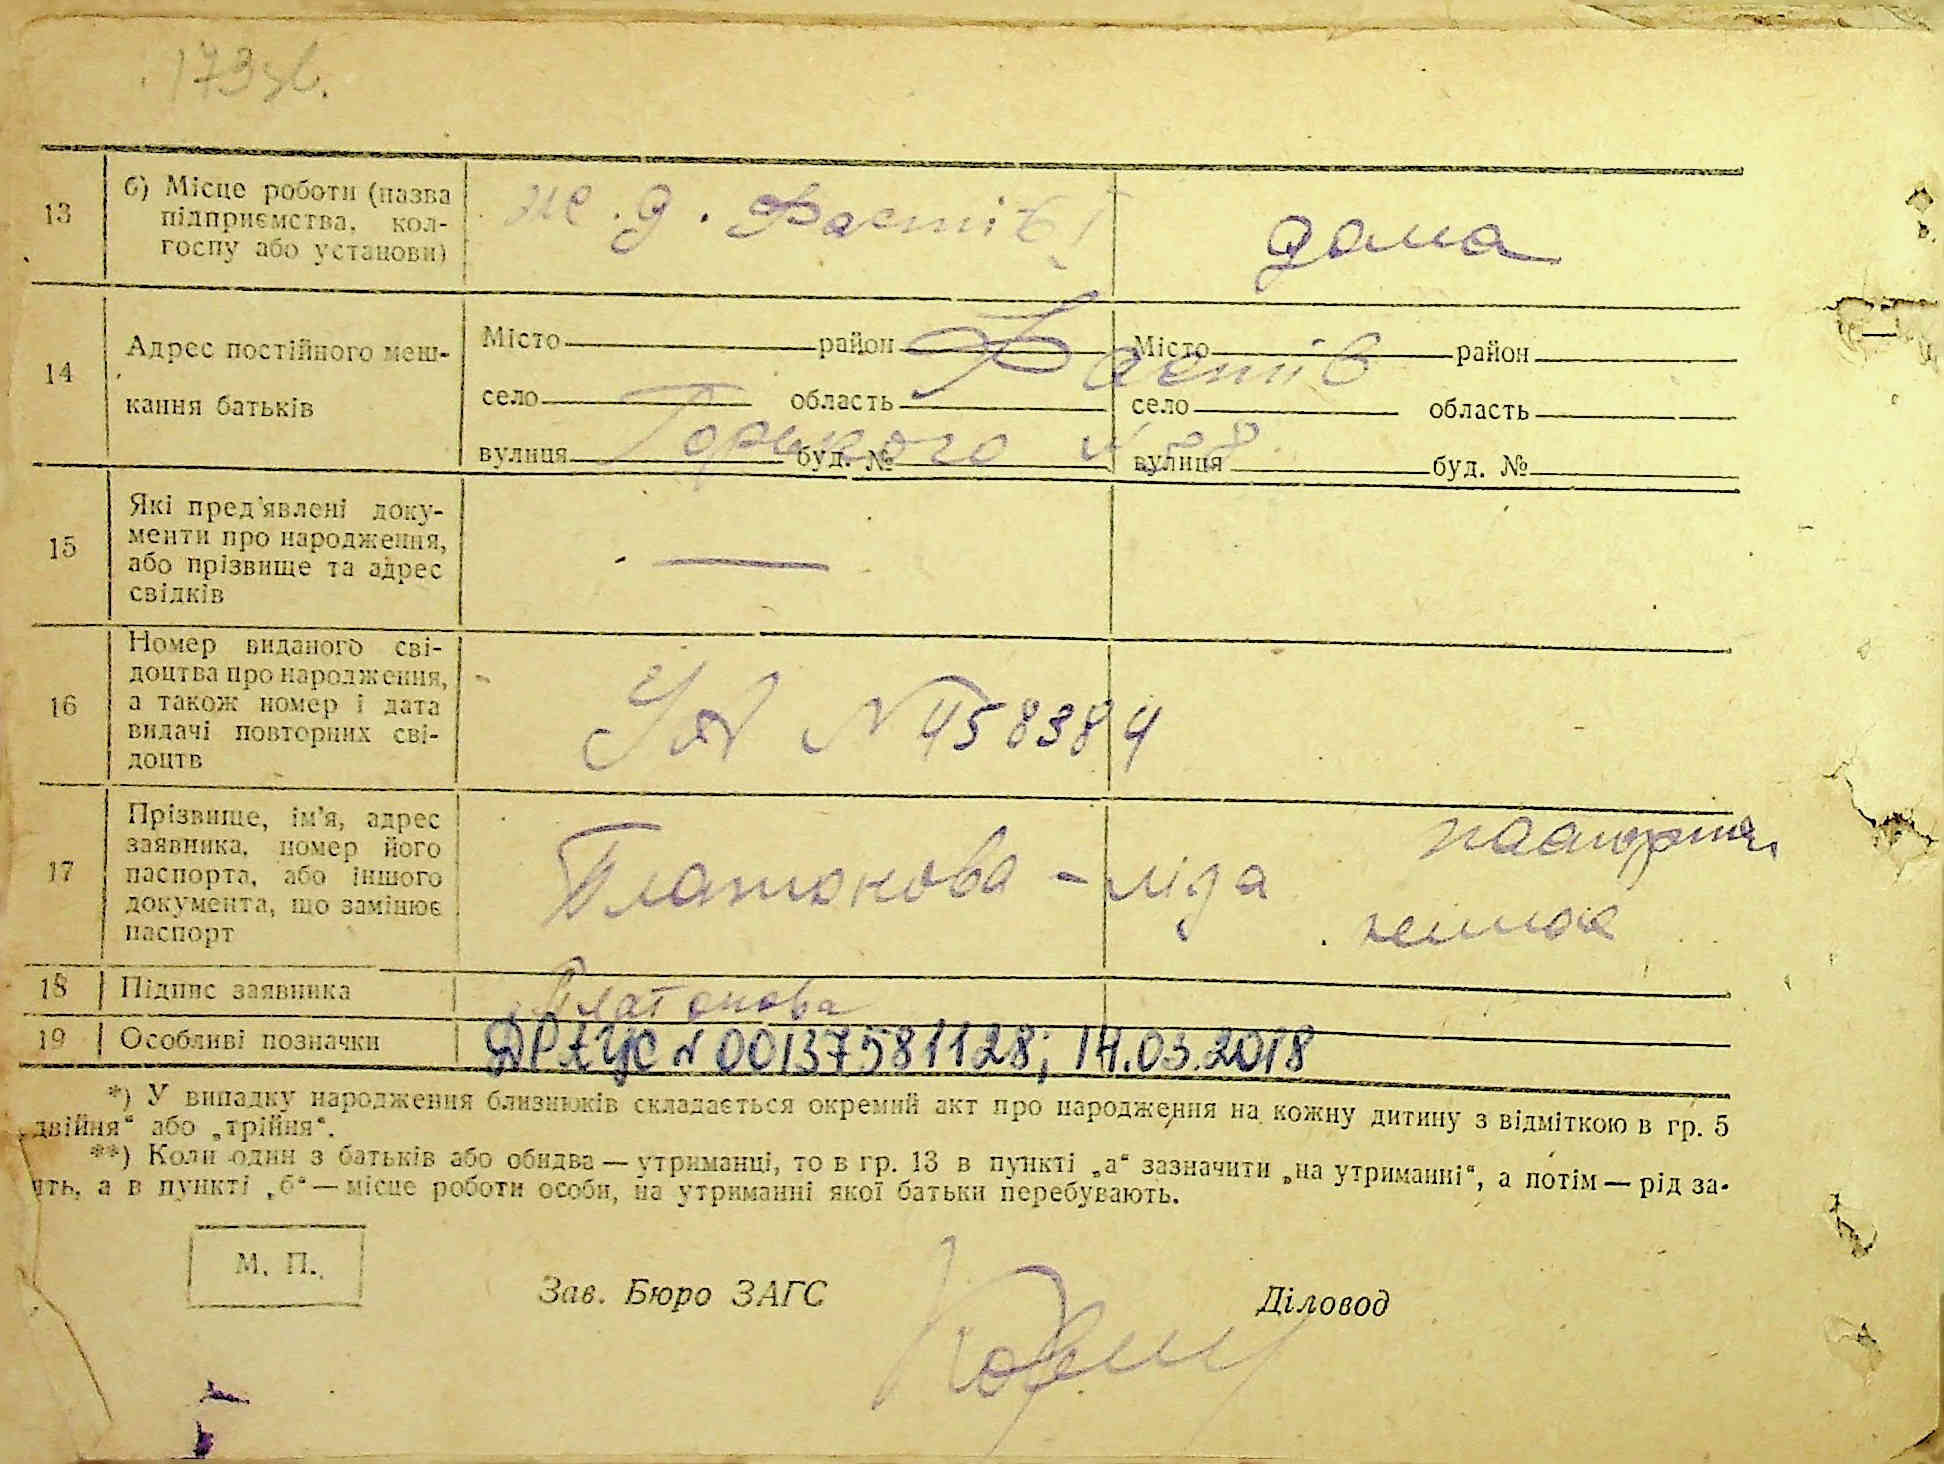 173 зв.
13
б) Місце роботи (назва
підприємства, кол-
госпу або установи)
ж. д. Фастів І
дома
14
Адрес постійного меш-
кання батьків
Місто район Місто район
Фастів
село область село область
Горького №
вулиця буд. № вулиця буд. №
15
Які пред'явлені доку-
менти про народження,
або прізвище та адрес
свідків
—
16
Номер виданого сві-
доцтва про народження,
а також номер і дата
видачі повторних сві-
доцтв
N 458384
17
Прізвище, ім'я, адрес
заявника, номер його
паспорта, або іншого
документа, що замінює
паспорт
Платонова - ліда
18
Підпис заявника
Платонова
19
Особливі позначки
ДРАЦС N 00137581128; 14.03.2018
*) У випадку народження близнюків складається окремий акт про народження на кожну дитину з відміткою в гр. 5
„двійня“ або „трійня“.
**) Коли один з батьків або обидва — утриманці, то в гр. 13 в пункті „а“ зазначити „на утриманні“, а потім — рід за-
ять, а в пункті „б“ — місце роботи особи, на утриманні якої батьки перебувають.
М. П.
Зав. Бюро ЗАГС
Діловод